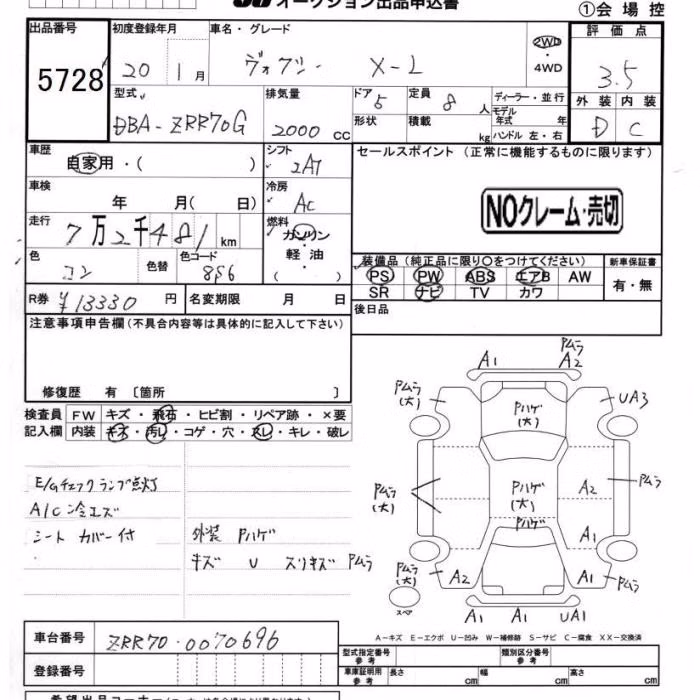 オークション出品申込書
①会場控
出品番号
5728
初度登録年月
20 1月
車名・グレード
ヴォクシー X-L
2WD
・
4WD
評価点
3.5
外装 内装
D C
型式
DBA-ZRR70G
排気量
2000 cc
ドア 5
形状
定員 8 人
積載 kg
ディーラー・並行
モデル年式 年
ハンドル 左・右
車歴
自家用・( )
シフト
2AT
セールスポイント (正常に機能するものに限ります)
車検
年 月( 日)
冷房
AC
NOクレーム・売切
走行
7万2千481km
燃料
ガソリン
・
軽油
( )
色
コン
色替
色コード
8S6
装備品(純正品に限り○をつけてください)
PS PW ABS エアB AW
SR ナビ TV カワ
新車保証書
有・無
R券 ¥13330円
名変期限 月 日
後日品
注意事項申告欄(不具合内容等は具体的に記入して下さい)
修復歴 有〔箇所 〕
検査員 FW キズ・飛石・ヒビ割・リペア跡・×要
記入欄 内装 キズ・汚レ・コゲ・穴・スレ・キレ・破レ
E/Gチェックランプ点灯
A/C冷エズ
シートカバー付
外装 Pハゲ
キズ U スリキズ Pムラ
A1
Pムラ
A2
Pムラ
(大)
UA3
Pハゲ
(大)
Pムラ
(大)
Pハゲ
(大)
A2
Pムラ
Pハゲ
A1
Pムラ
(大)
A2
A1
Pムラ
スペア
A1 A1 UA1
A-キズ E-エクボ U-凹み W-補修跡 S-サビ C-腐食 XX-交換済
車台番号
ZRR70-0070696
登録番号
型式指定番号
参考
類別区分番号
参考
車庫証明用
参考
長さ cm
幅 cm
高さ cm